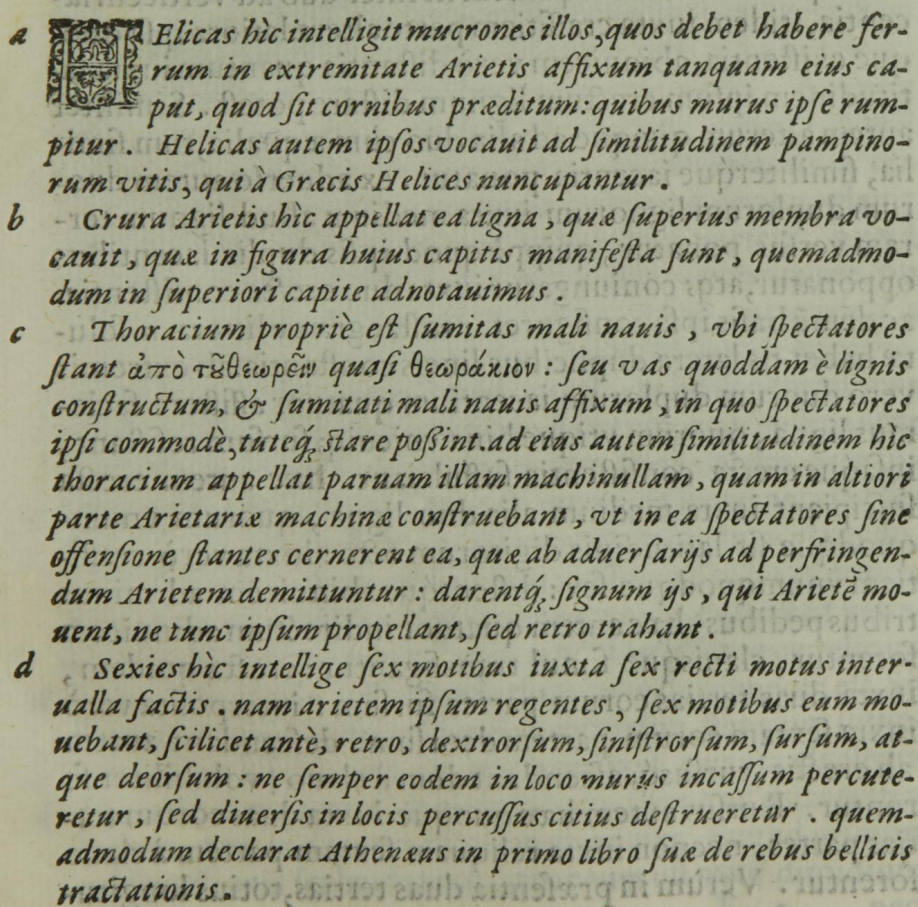 a HElicas hìc intelligit mucrones illos, quos debet habere fer-
rum in extremitate Arietis affixum tanquam eius ca-
put, quod ſit cornibus præditum: quibus murus ipſe rum-
pitur. Helicas autem ipſos vocauit ad ſimilitudinem pampino-
rum vitis, qui à Græcis Helices nuncupantur.
b Crura Arietis hìc appellat ea ligna, quæ ſuperius membra vo-
cauit, quæ in figura huius capitis manifeſta ſunt, quemadmo-
dum in ſuperiori capite adnotauimus.
c Thoracium propriè eſt ſumitas mali nauis, vbi ſpectatores
ſtant ἀπὸ τȣ͂θεωρεῖν quaſi θεωράκιον: ſeu vas quoddam è lignis
conſtructum, & ſumitati mali nauis affixum, in quo ſpectatores
ipſi commodè, tuteq́; ſtare poßint. ad eius autem ſimilitudinem hìc
thoracium appellat paruam illam machinullam, quam in altiori
parte Arietariæ machinæ conſtruebant, vt in ea ſpectatores ſine
offenſione ſtantes cernerent ea, quæ ab aduerſarijs ad perfringen-
dum Arietem demittuntur: darentq́; ſignum ijs, qui Arietē mo-
uent, ne tunc ipſum propellant, ſed retro trahant.
d Sexies hìc intellige ſex motibus iuxta ſex recti motus inter-
ualla factis. nam arietem ipſum regentes, ſex motibus eum mo-
uebant, ſcilicet antè, retro, dextrorſum, ſiniſtrorſum, ſurſum, at-
que deorſum: ne ſemper eodem in loco murus incaſſum percute-
retur, ſed diuerſis in locis percuſſus citius deſtrueretur. quem-
admodum declarat Athenæus in primo libro ſuæ de rebus bellicis
tractationis.